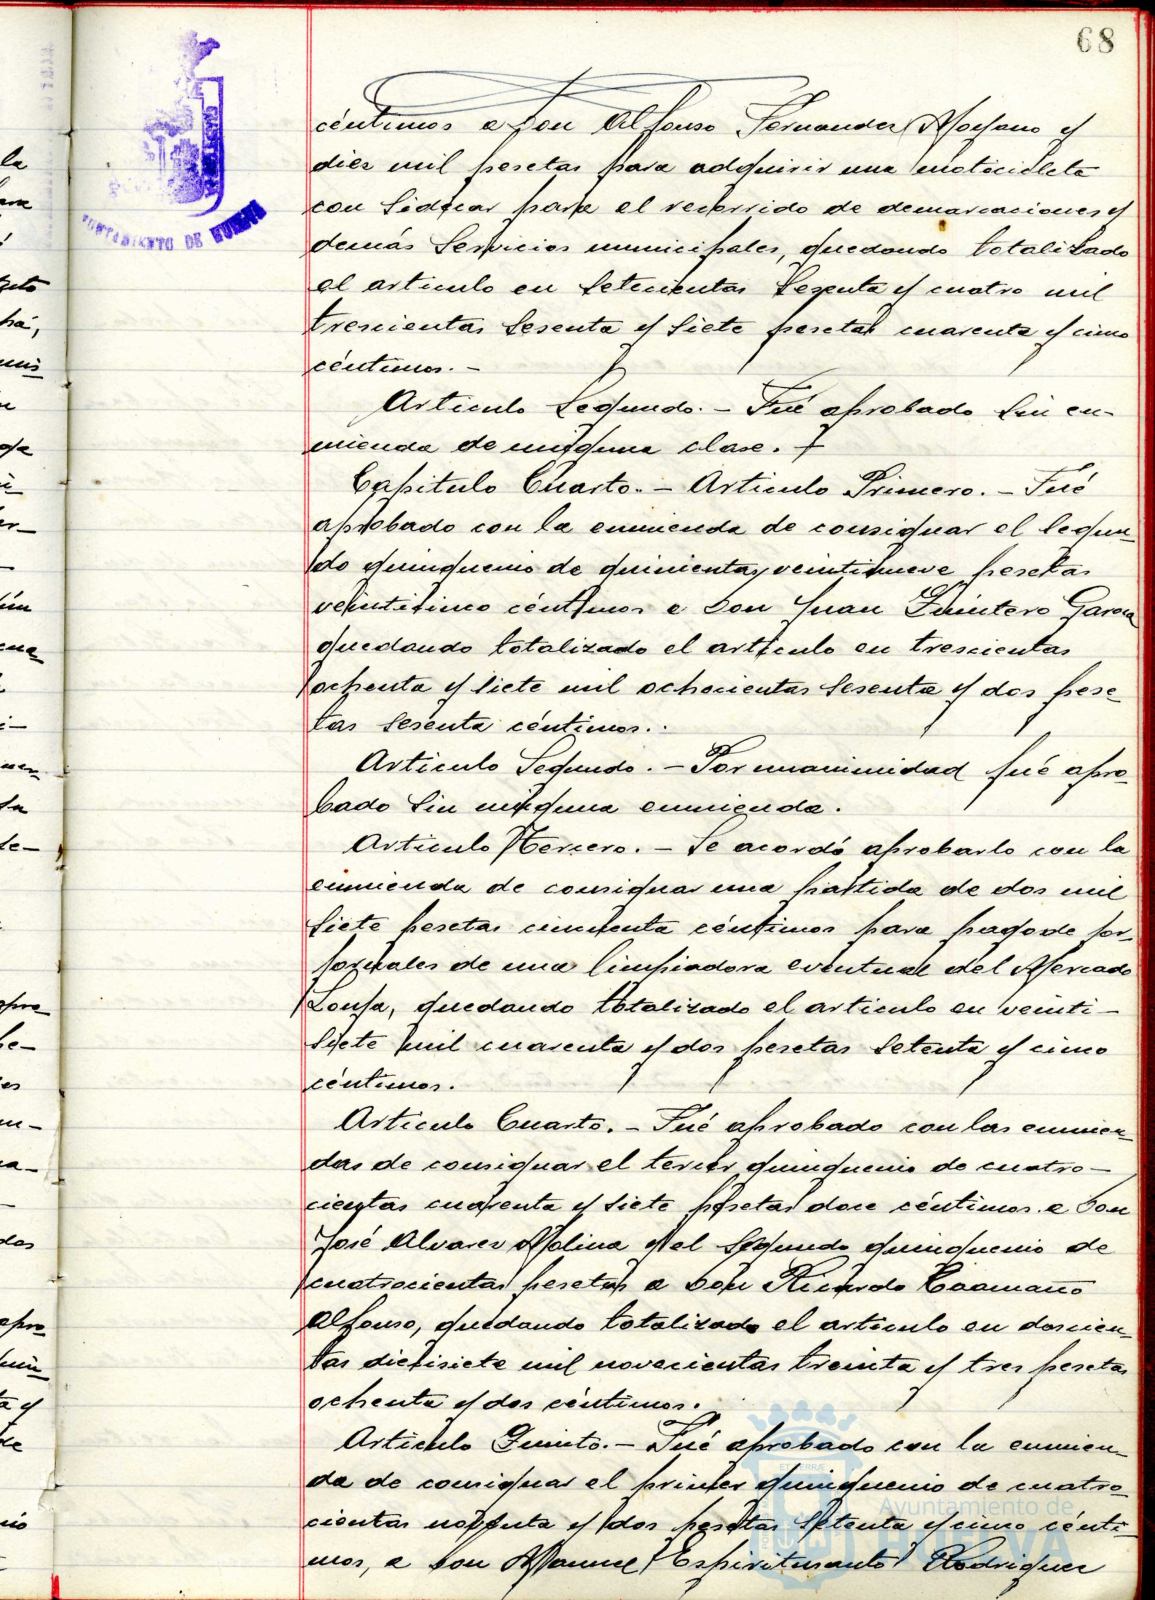 68
céntimos a Don Alfonso Fernandez Moyano y
diez mil pesetas para adquirir una motocicleta
con Sidecar para el recorrido de demarcaciones y
demás Servicios municipales, quedando totalizado
el articulo en Setecientas Sesenta y cuatro mil
trescientas Sesenta y Siete pesetas cuarenta y cinco
céntimos.-
Articulo Segundo.- Fué aprobado Sin en-
mienda de ninguna clase.
Capitulo Cuarto.- Articulo Primero.- Fué
aprobado con la enmienda de consignar el Segun-
do quinquenio de quinientas veintinueve pesetas
veinticinco céntimos a Don Juan Quintero Garcia
quedando totalizado el articulo en trescientas
ochenta y Siete mil ochocientas Sesenta y dos pese-
tas Sesenta céntimos.
Articulo Segundo.- Por unanimidad fué apro-
bado Sin ninguna enmienda.
Articulo Tercero.- Se acordó aprobarlo con la
enmienda de consignar una partida de dos mil
Siete pesetas cincuenta céntimos para pago de jor-
jornales de una limpiadora eventual del Mercado
Lonja, quedando totalizado el articulo en veinti-
Siete mil cuarenta y dos pesetas Setenta y cinco
céntimos.
Articulo Cuarto.- Fué aprobado con las enmien-
das de consignar el tercer quinquenio de cuatro-
cientas cuarenta y Siete pesetas doce céntimos a Don
José Alvarez Molina y el Segundo quinquenio de
cuatrocientas pesetas a Don Ricardo Caamaño
Alfonso, quedando totalizado el articulo en doscien-
tas diecisiete mil novecientas treinta y tres pesetas
ochenta y dos céntimos.
Articulo Quinto.- Fué aprobado con la enmien-
da de consignar el primer quinquenio de cuatro-
cientas noventa y dos pesetas Setenta y cinco cénti-
mos, a Don Manuel Espiritusanto Rodriguez
AYUNTAMIENTO DE HUELVA
Ayuntamiento de
HUELVA